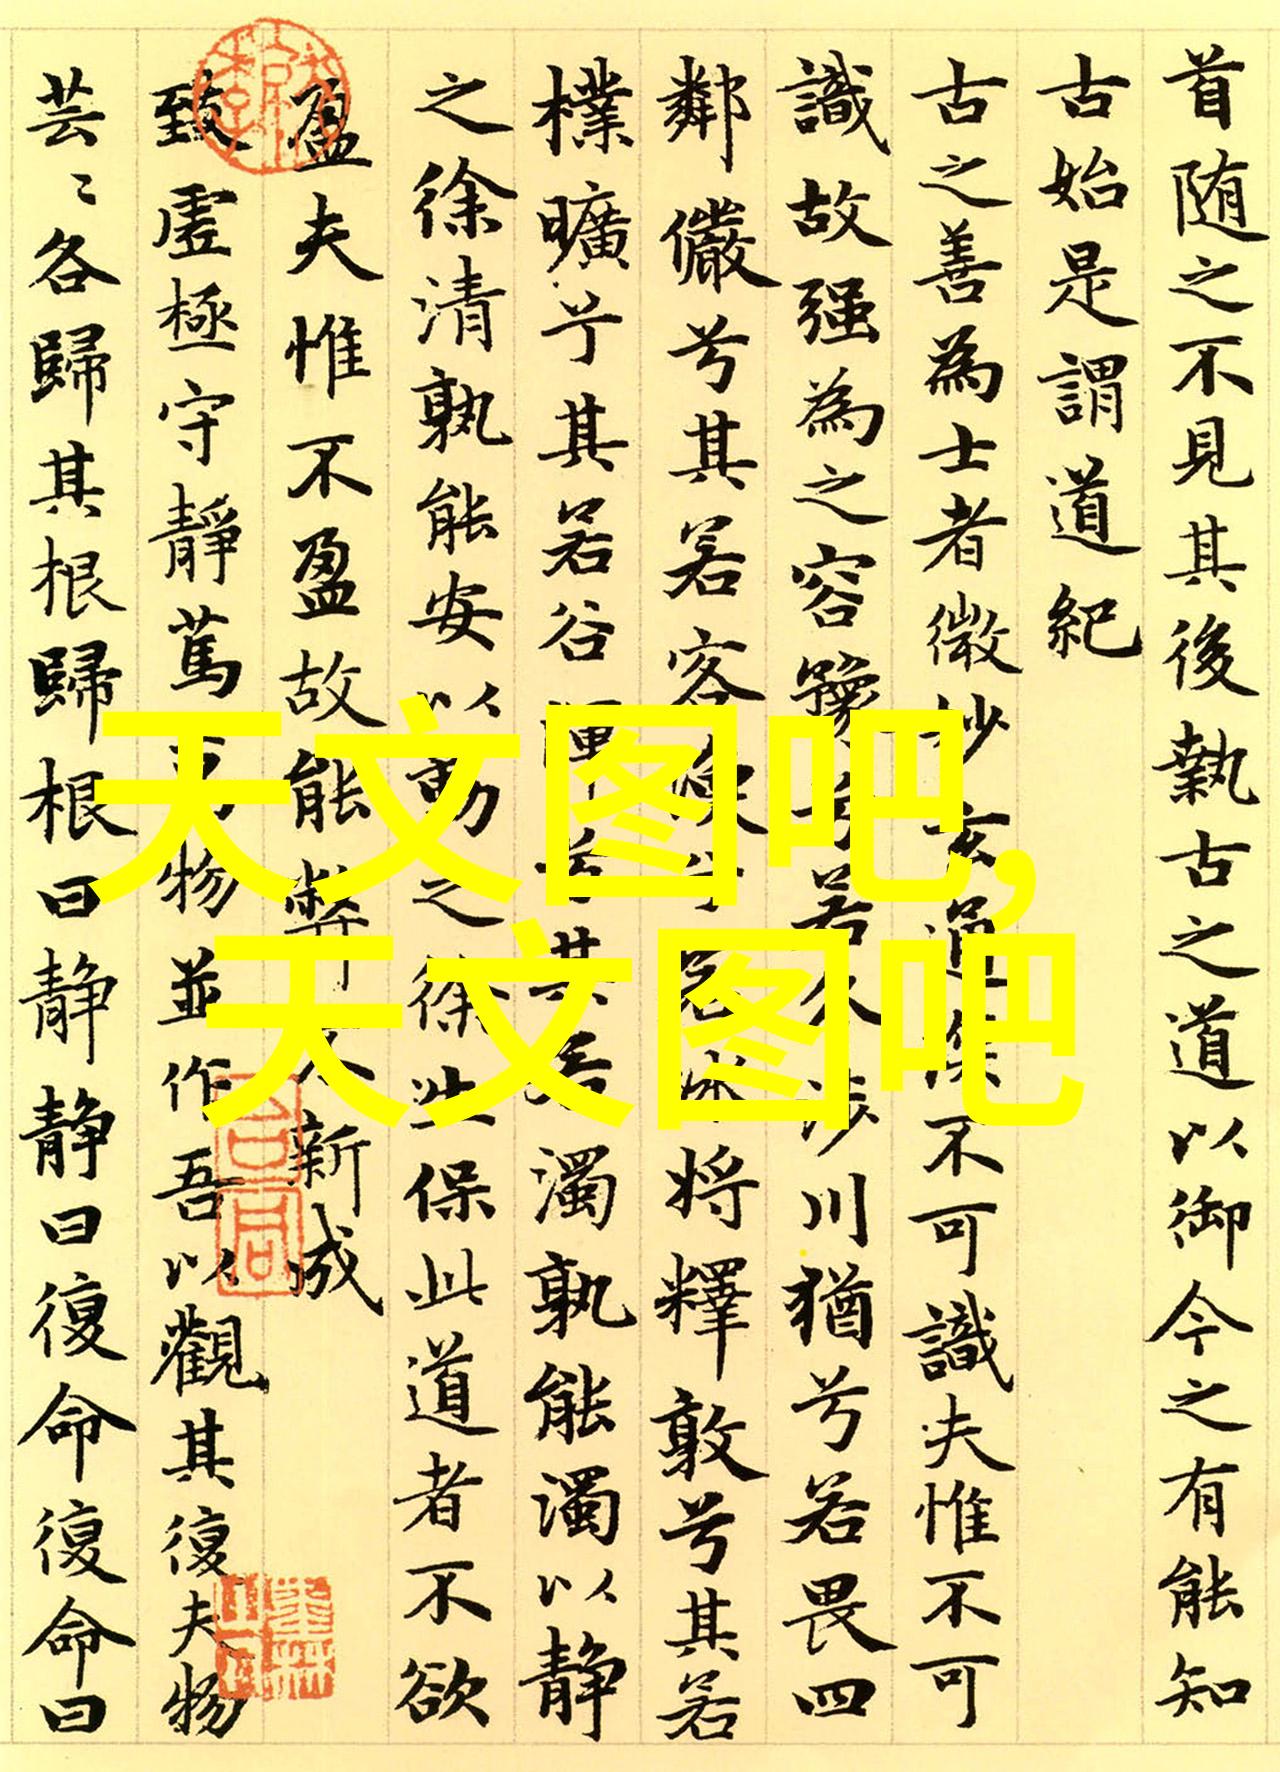 首随之不見其後執古之道以御今之有能知
古始是謂道紀
古之善為士者微妙玄通深不可識夫惟不可
識故强為之容豫兮若冬涉川猶兮若畏四
鄰儼兮其若客渙兮若冰將釋敦兮其若
樸曠兮其若谷渾兮其若濁孰能濁以静
之徐清孰能安以動之徐生保此道者不欲
盈夫惟不盈故能弊不新成
致虛極守靜篤萬物並作吾以觀其復夫物
芸〻各歸其根歸根曰静静曰復命復命曰
天文图吧,
天文图吧